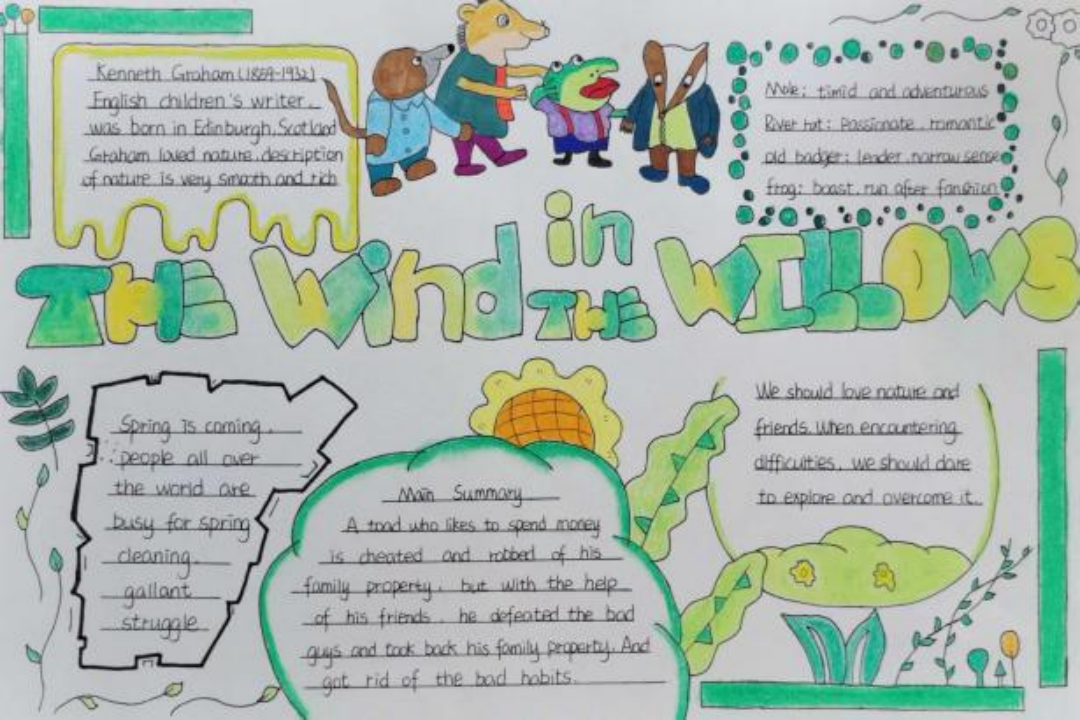 Kenneth Graham (1859-1932)
English children's writer.
was born in Edinburgh, Scotland
Graham loved nature, description
of nature is very smooth and rich
Mole: timid and adventurous
River rat: Passionate, romantic
old badger: leader, narrow sense
frog: boast, run after fanshion
THE Wind in THE WILLOWS
Spring is coming.
people all over
the world are
busy for spring
cleaning.
gallant
struggle
Main Summary
A toad who likes to spend money
is cheated and robbed of his
family property, but with the help
of his friends, he defeated the bad
guys and took back his family property. And
got rid of the bad habits.
We should love nature and
friends. When encountering
difficulties, we should dare
to explore and overcome it.